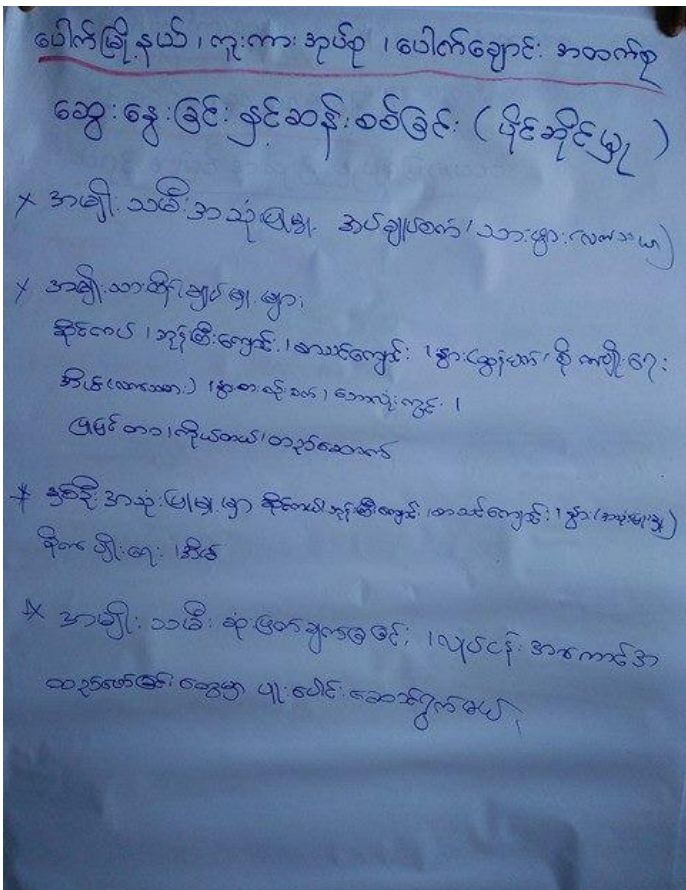 ပေါက်မြို့နယ်၊ ကူးကားအုပ်စု ၊ ပေါက်ချောင်း အထက်စု
ဆွေးနွေးခြင်း နှင့်ဆန်းစစ်ခြင်း ( ပိုင်ဆိုင်မှု )
* အမျိုးသမီးအသုံးပြုမှု အပ်ချုပ်စက်၊ သားမွှား (လယ်
* အမျိုးသားထိန်းချုပ်မှု များ၊
ဆိုင်ကယ် ၊ ဘုန်းကြီးကျောင်း ၊ စာသင်ကျောင်း ၊ နွား စိုက်ပျိုးရေး
အိမ် ၊ ဘောလုံးကွင်း ၊
* နှစ်ဦးအသုံးပြုမှု မှာ ဆိုင်ကယ်၊ ဘုန်းကြီးကျောင်း ၊ စာသင်ကျောင်း ၊ နွား (အသုံးပြုမှု)
စိုက်ပျိုးရေး ၊ အိမ်
* အမျိုးသမီး ဆုံးဖြတ်ချက်ချခြင်း ၊ လုပ်ငန်း အကောင်အ
ထည်ဖော်ခြင်းတွေမှာ ပူးပေါင်းဆောင်ရွက်မယ်၊